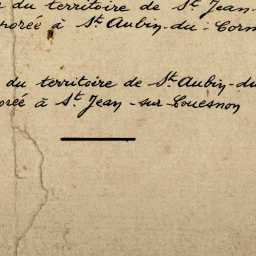 du territoire de St Jean-
orée à St Aubin-du-Corm
du territoire de St Aubin-du
orée à St Jean-sur-Couesnon